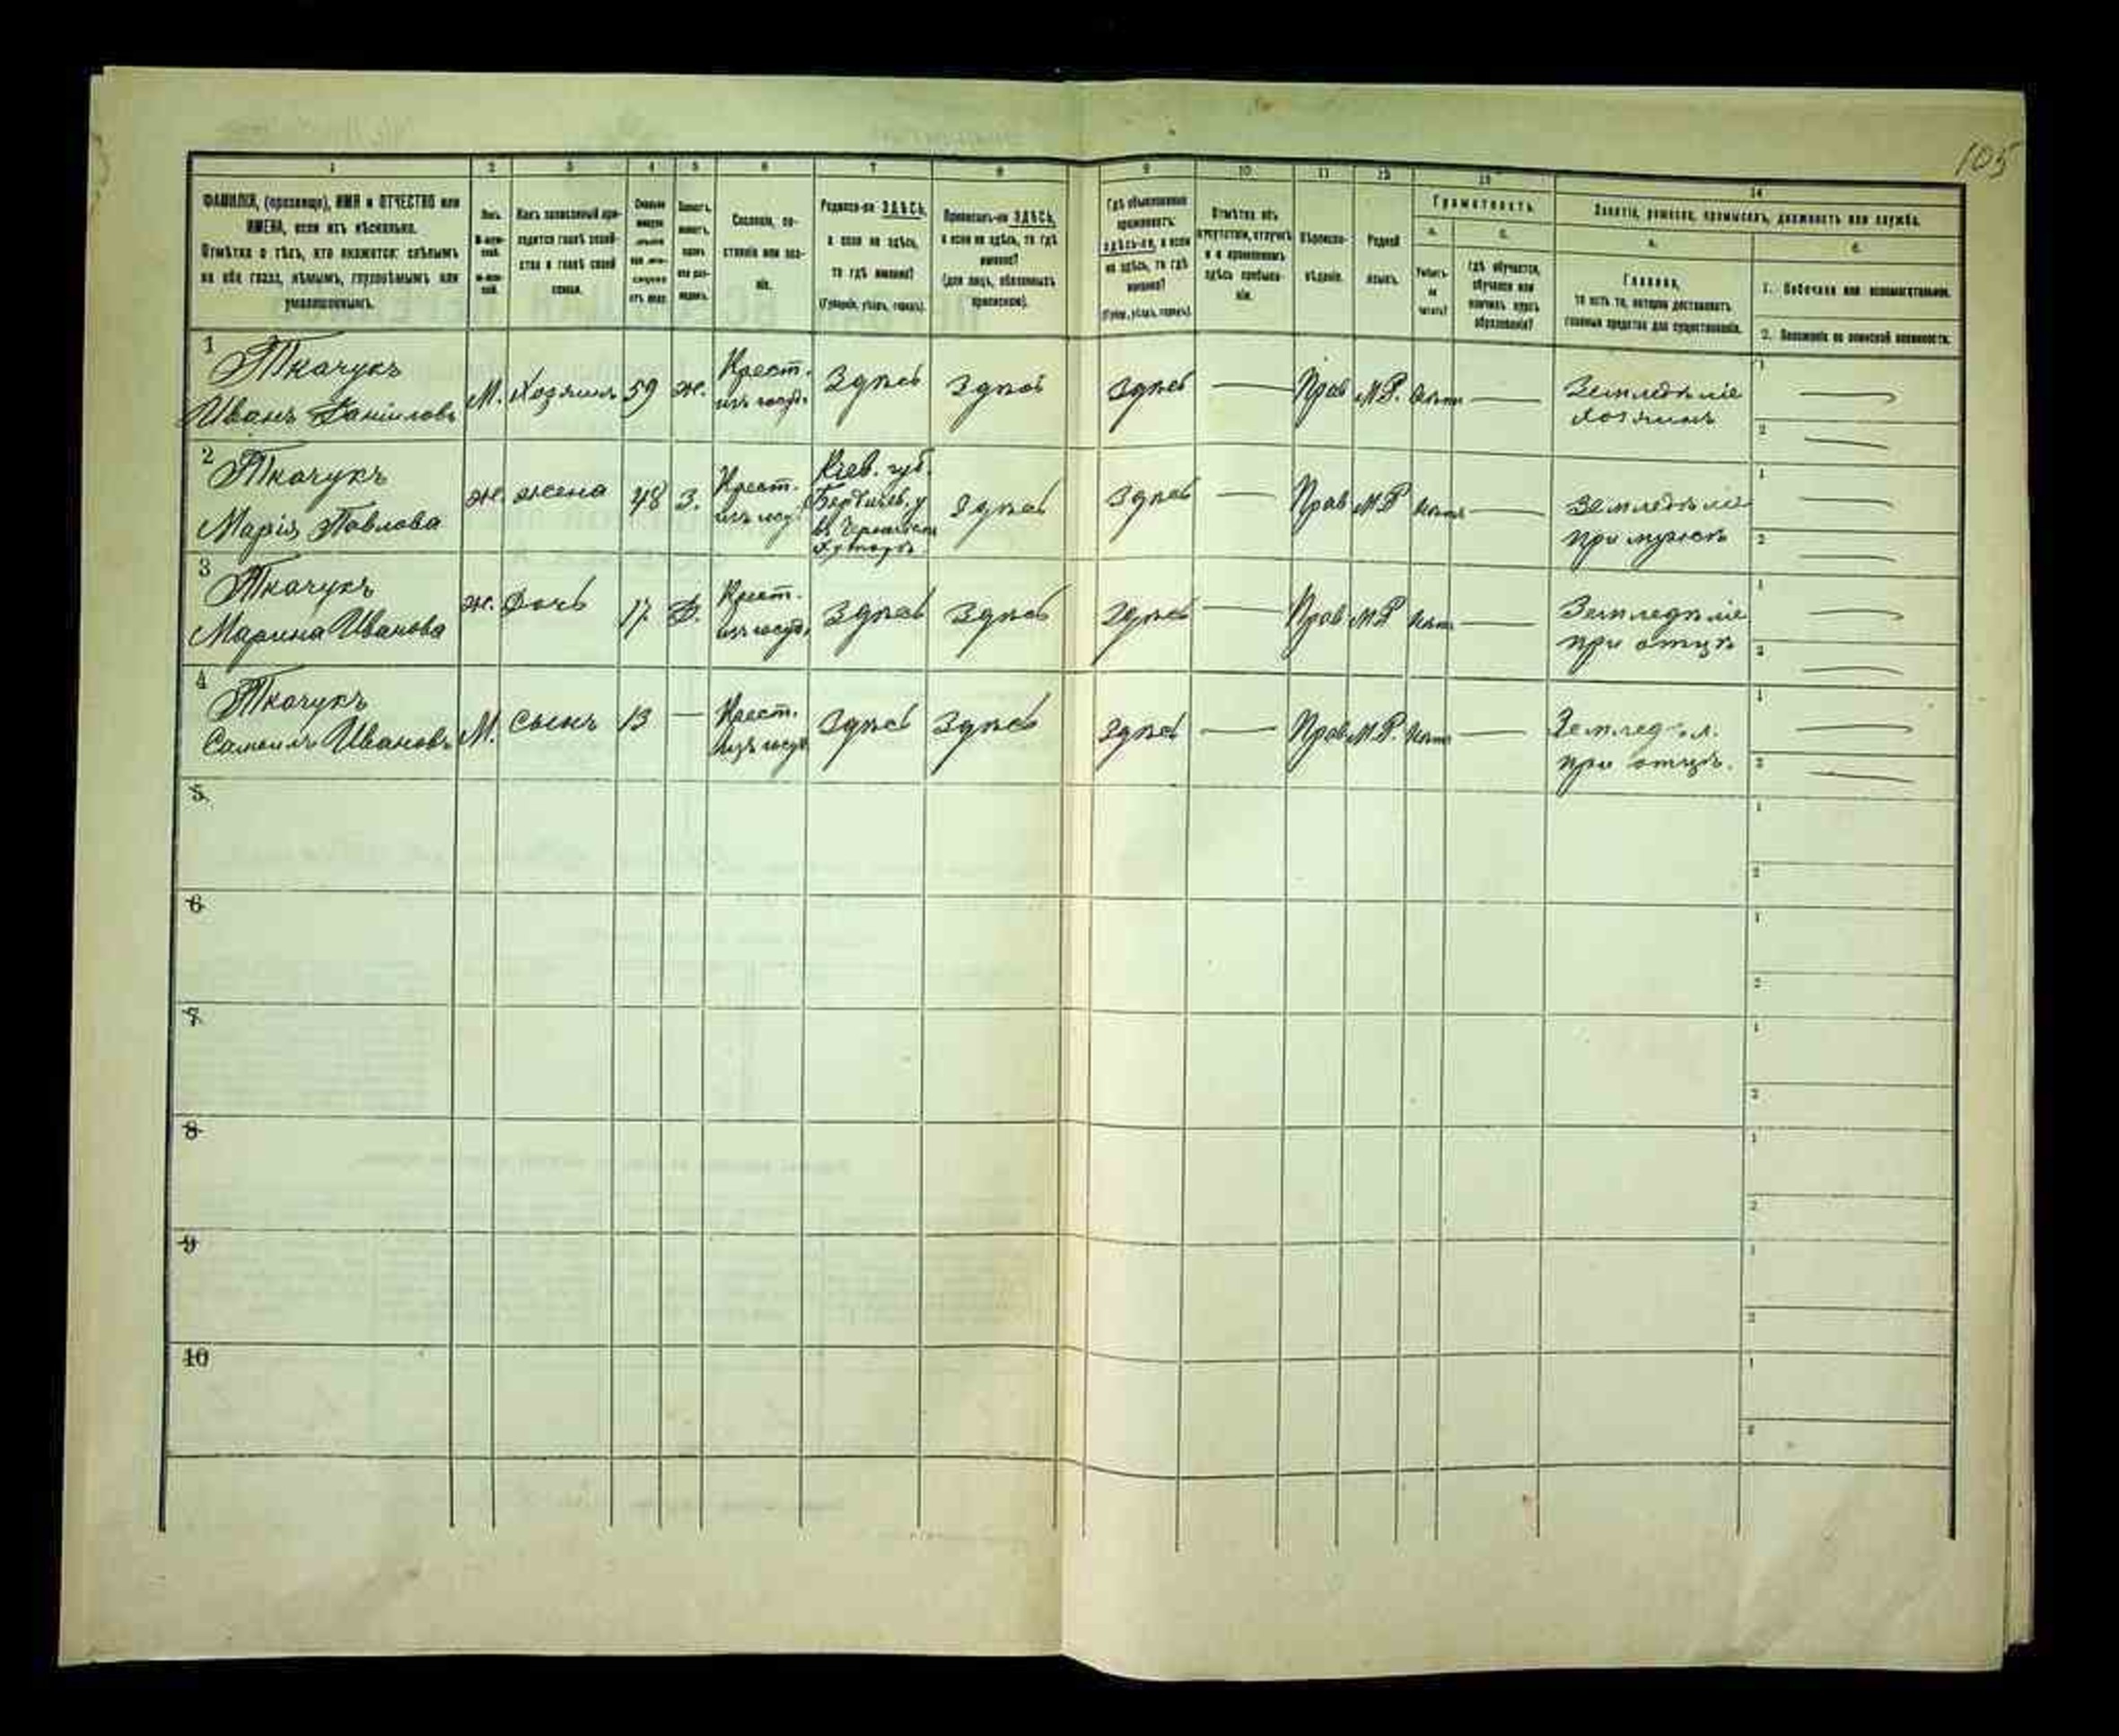 105
1 2 3 4 5 6 7 8 9 10 11 12 13 14
ФАМИЛІЯ, (прозвище), ИМЯ и ОТЧЕСТВО или
ИМЕНА, если ихъ нѣсколько.
Отмѣтка о тѣхъ, кто окажется: слѣпымъ
на оба глаза, нѣмымъ, глухонѣмымъ или
умалишеннымъ.
Полъ.
Какъ записанный при-
ходится главѣ хозяй-
ства и главѣ своей
семьи.
Сословіе, со-
стояніе или зва-
ніе.
Родился-ли ЗДѢСЬ,
а если не здѣсь,
то гдѣ именно?
(Губернія, уѣздъ, городъ).
Приписанъ-ли ЗДѢСЬ,
а если не здѣсь, то гдѣ
именно?
(для лицъ, обязанныхъ
припискою).
Гдѣ обыкновенно
проживаетъ:
здѣсь-ли, а если
не здѣсь, то гдѣ
именно?
(Губер., уѣздъ, городъ).
Отмѣтка объ
отсутствіи, отлучкѣ
и о временномъ
здѣсь пребыва-
ніи.
Вѣроиспо-
вѣданіе.
Родной
языкъ.
Грамотность.
а.
Умѣетъ-
ли
читать?
б.
Гдѣ обучается,
обучался или
кончилъ курсъ
образованія?
Занятіе, ремесло, промыселъ, должность или служба.
а.
Главное,
то есть то, которое доставляетъ
главныя средства для существованія.
б.
1. Побочное или вспомогательное.
2. Положеніе по воинской повинности.
1
Ткачукъ
Иванъ Даниловъ
М. Хозяинъ 59 ж. Крест.
изъ госуд. Здѣсь Здѣсь Здѣсь Прав М.Р.
Земледѣліе
хозяинъ
1
2
2
Ткачукъ
Марія Павлова
ж жена 48 З. Крест.
изъ госуд.
Кіев. губ.
Бердичев. у
Здѣсь Здѣсь Прав М.Р
Земледѣліе
при мужѣ
1
2
3
Ткачукъ
Марина Иванова
ж. Дочь 17 Д. Крест.
изъ госуд. Здѣсь Здѣсь Здѣсь Прав М.Р
Земледѣліе
при отцѣ
1
2
4
Ткачукъ
Самоилъ Ивановъ
М. Сынъ 13 — Крест.
изъ госуд Здѣсь Здѣсь Здѣсь Прав М.Р.
Землед‑л.
при отцѣ.
1
2
5
1
2
6
1
2
7
1
2
8
1
2
9
1
2
10
1
2